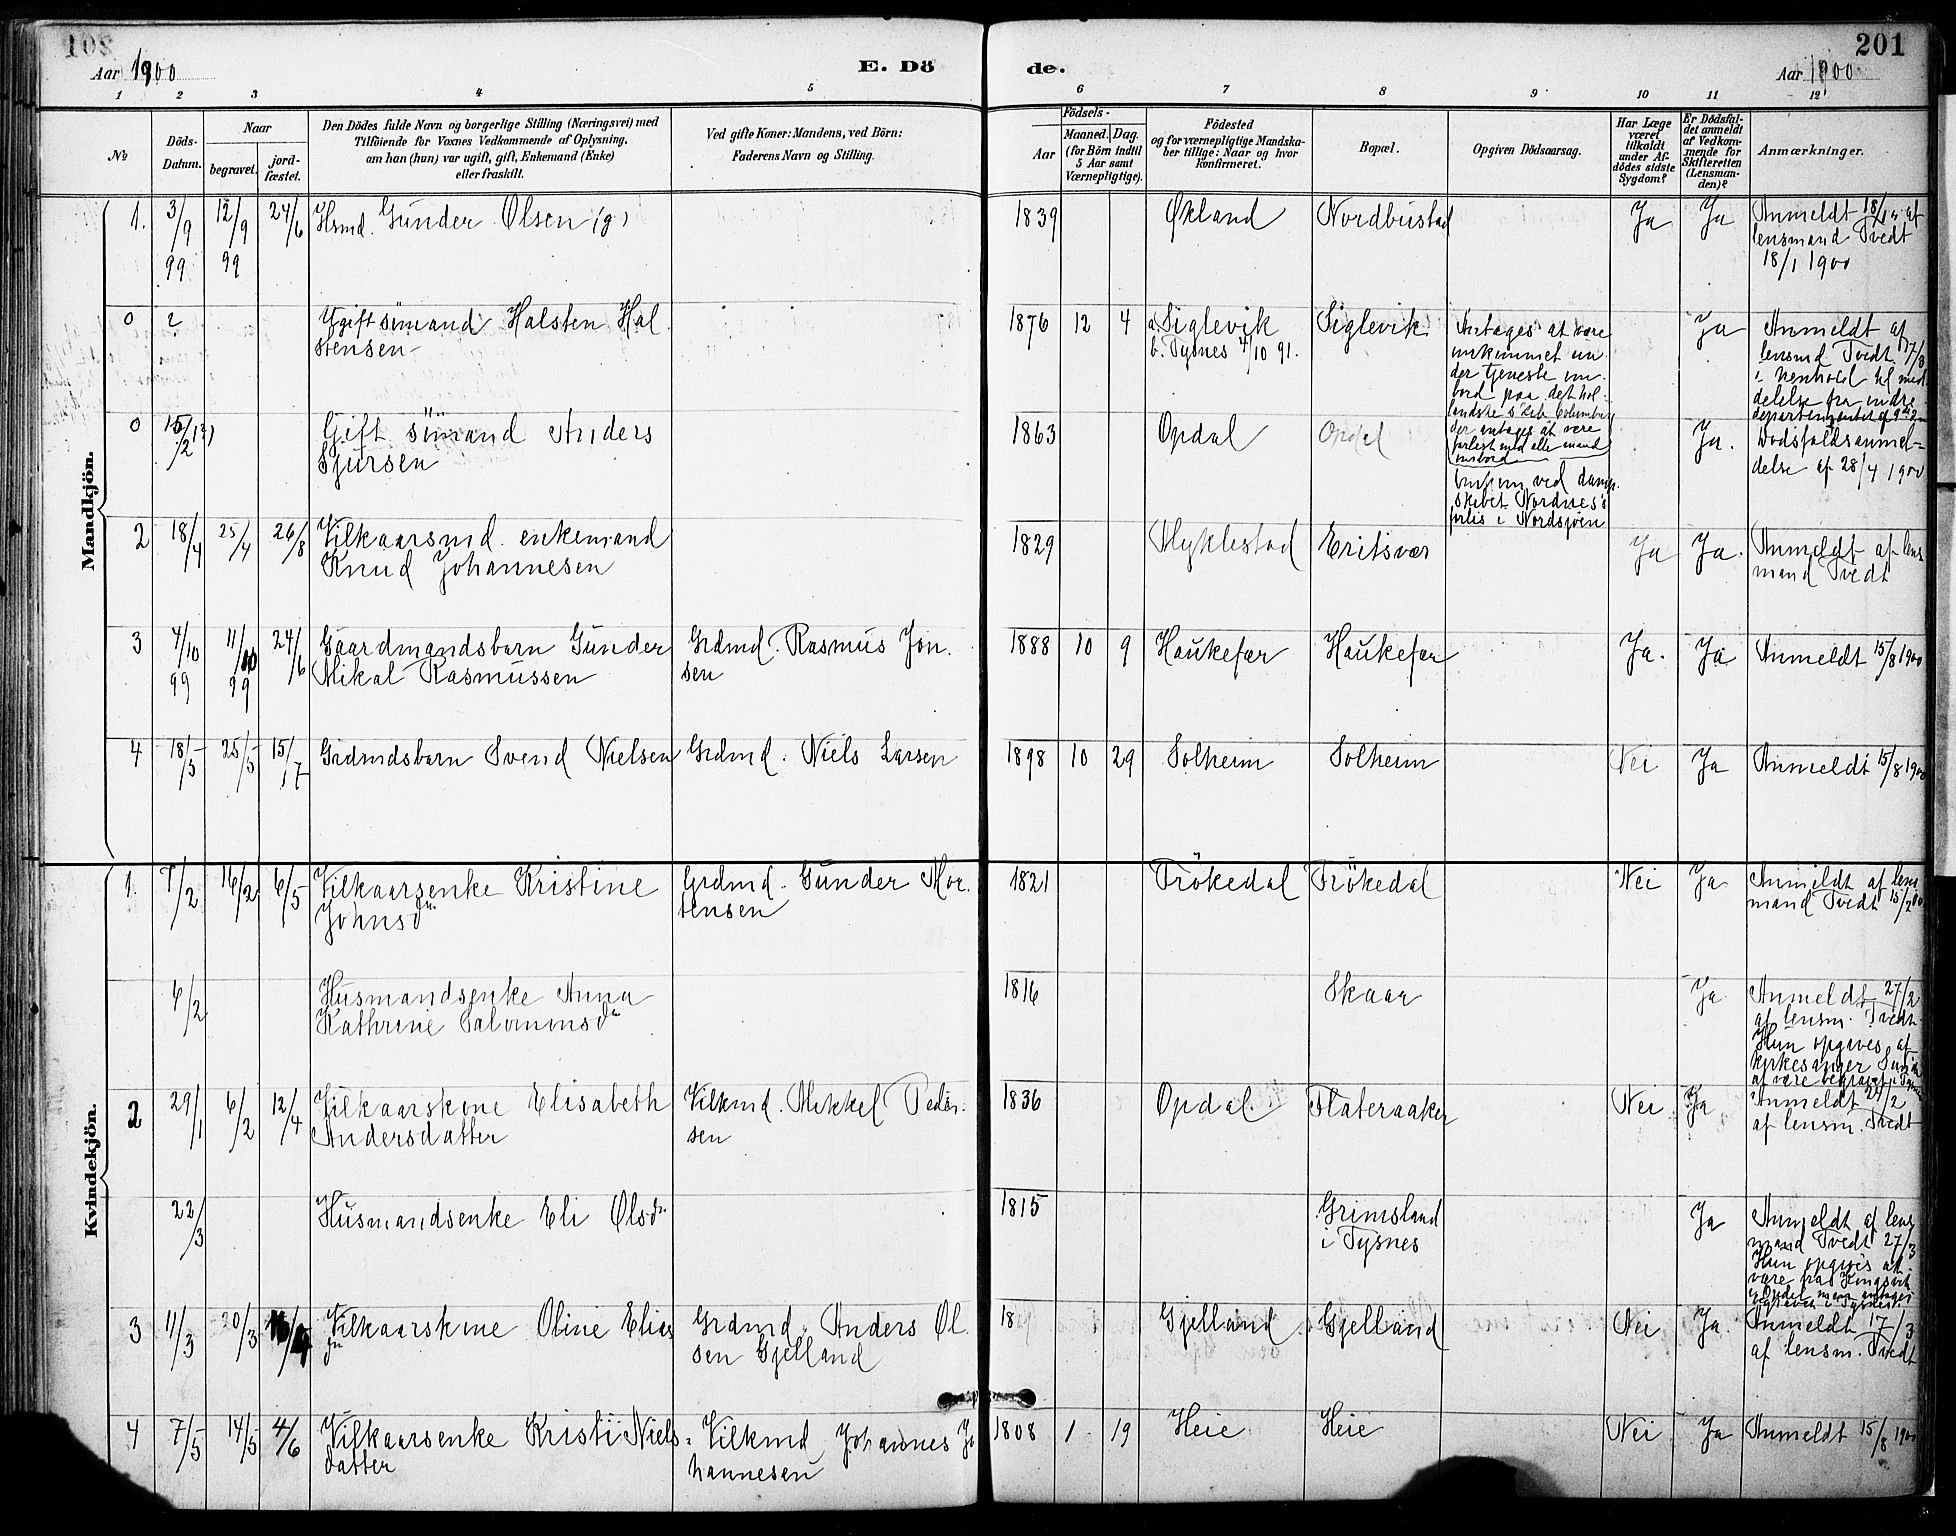 108
201
Aar 1900
E. Dö
de.
Aar 1900
1 2 3 4 5 6 7 8 9 10 11 12
№
Döds-
Datum.
Naar
begravet.
jord-
fæstet.
Den Dödes fulde Navn og borgerlige Stilling (Næringsvei) med
Tilföiende for Voxnes Vedkommende af Oplysning,
om han (hun) var ugift, gift, Enkemand (Enke)
eller fraskilt.
Ved gifte Koner: Mandens, ved Börn:
Faderens Navn og Stilling.
Födsels-
Aar
Maaned. Dag.
(for Börn indtil
5 Aar samt
Værnepligtige).
Födested
og for værnepligtige Mandska-
ber tillige: Naar og hvor
konfirmeret.
Bopæl.
Opgiven Dödsaarsag.
Har Læge
været
tilkaldt
under Af-
dödes sidste
Sygdom?
Er Dödsfal-
det anmeldt
af Vedkom-
mende for
Skifteretten
(Lensman-
den)?
Anmærkninger.
Mandkjön.
1. 3/9 99 12/9 99 24/6 Hsmd. Gunder Olsen (g) 1839 Økland Nordbustad Ja Ja Anmeldt 18/1 af
lensmand Tvedt
18/1 1900
0 2 Ugift sömand Halsten Hal
stensen 1876 12 4 a. Siglevik
b. Tysnes 4/10 91. Siglevik Antages at være
omkommet un
der tjeneste om
bord paa det hol
landske s
der antages at være
forlist med alle mand
ombord Ja Anmeldt af
lensmd Tvedt 17/8
i henhold til med
delelse fra indre
departementet af
0 15/2 Gift sömand Anders
Sjursen 1863 Opdal Opdal Omkom ved damp
skibet Nordnes's
forlis i Nordsjöen Ja. Dödsfaldsanmel-
delse af 28/4 1900
2 18/4 25/4 26/8 Vilkaarsmd. enkemand
Knud Johannesen 1829 Myklestad Eritsvær Ja Ja. Anmeldt af lens
mand Tvedt
3 4/10 99 11/10 99 24/6 Gaardmandsbarn Gunder
Mikal Rasmussen Grdmd. Rasmus Jon.
sen 1888 10 9 Haukefær Haukefær Ja. Ja Anmeldt 15/8 1900
4 18/5 25/5 15/7 Grdmdsbarn Svend Nielsen Grdmd. Niels Larsen 1898 10 29 Solheim Solheim Nei Ja Anmeldt 15/8 1900
Kvindekjön.
1. 7/2 16/2 6/5 Vilkaarsenke Kristine
Johnsdtr Grdmd. Gunder Mor.
tensen 1821 Frökedal Frökedal Nei Ja Anmeldt af lens
mand Tvedt 15/2 00
6/2 Husmandsenke Anna
Kathrine Salomonsdtr 1816 Skaar Ja Anmeldt 27/2
af lensm. Tvedt.
Hun opgives af
kirkesanger
at være begravet i Tysnes
2 29/1 6/2 12/4 Vilkaarskone Elisabeth
Andersdatter Vilkmd. Mikkel Peder.
sen 1836 Opdal. Flateraaker Nei Ja Anmeldt 27/2
af lensm. Tvedt
22/3 Husmandsenke Eli Olsdtr 1815 Grimsland
i Tysnes Ja Anmeldt af lens
mand Tvedt 27/3
Hun opgives at
være fra Kingsvik
i Opdal men antages
begravet i Tysnes.
3 11/3 20/3 Vilkaarskone Oline Elias
dtr Grdmd. Anders Ol.
sen Gjelland 18 Gjelland Gjelland Nei Ja. Anmeldt 17/3
af lensm. Tvedt
4 7/5 14/5 4/6 Vilkaarsenke Kristi Niels
datter Vilkmd Johannes Jo
hannesen 1808 1 19 Heie Heie Nei Ja Anmeldt 15/8 1900